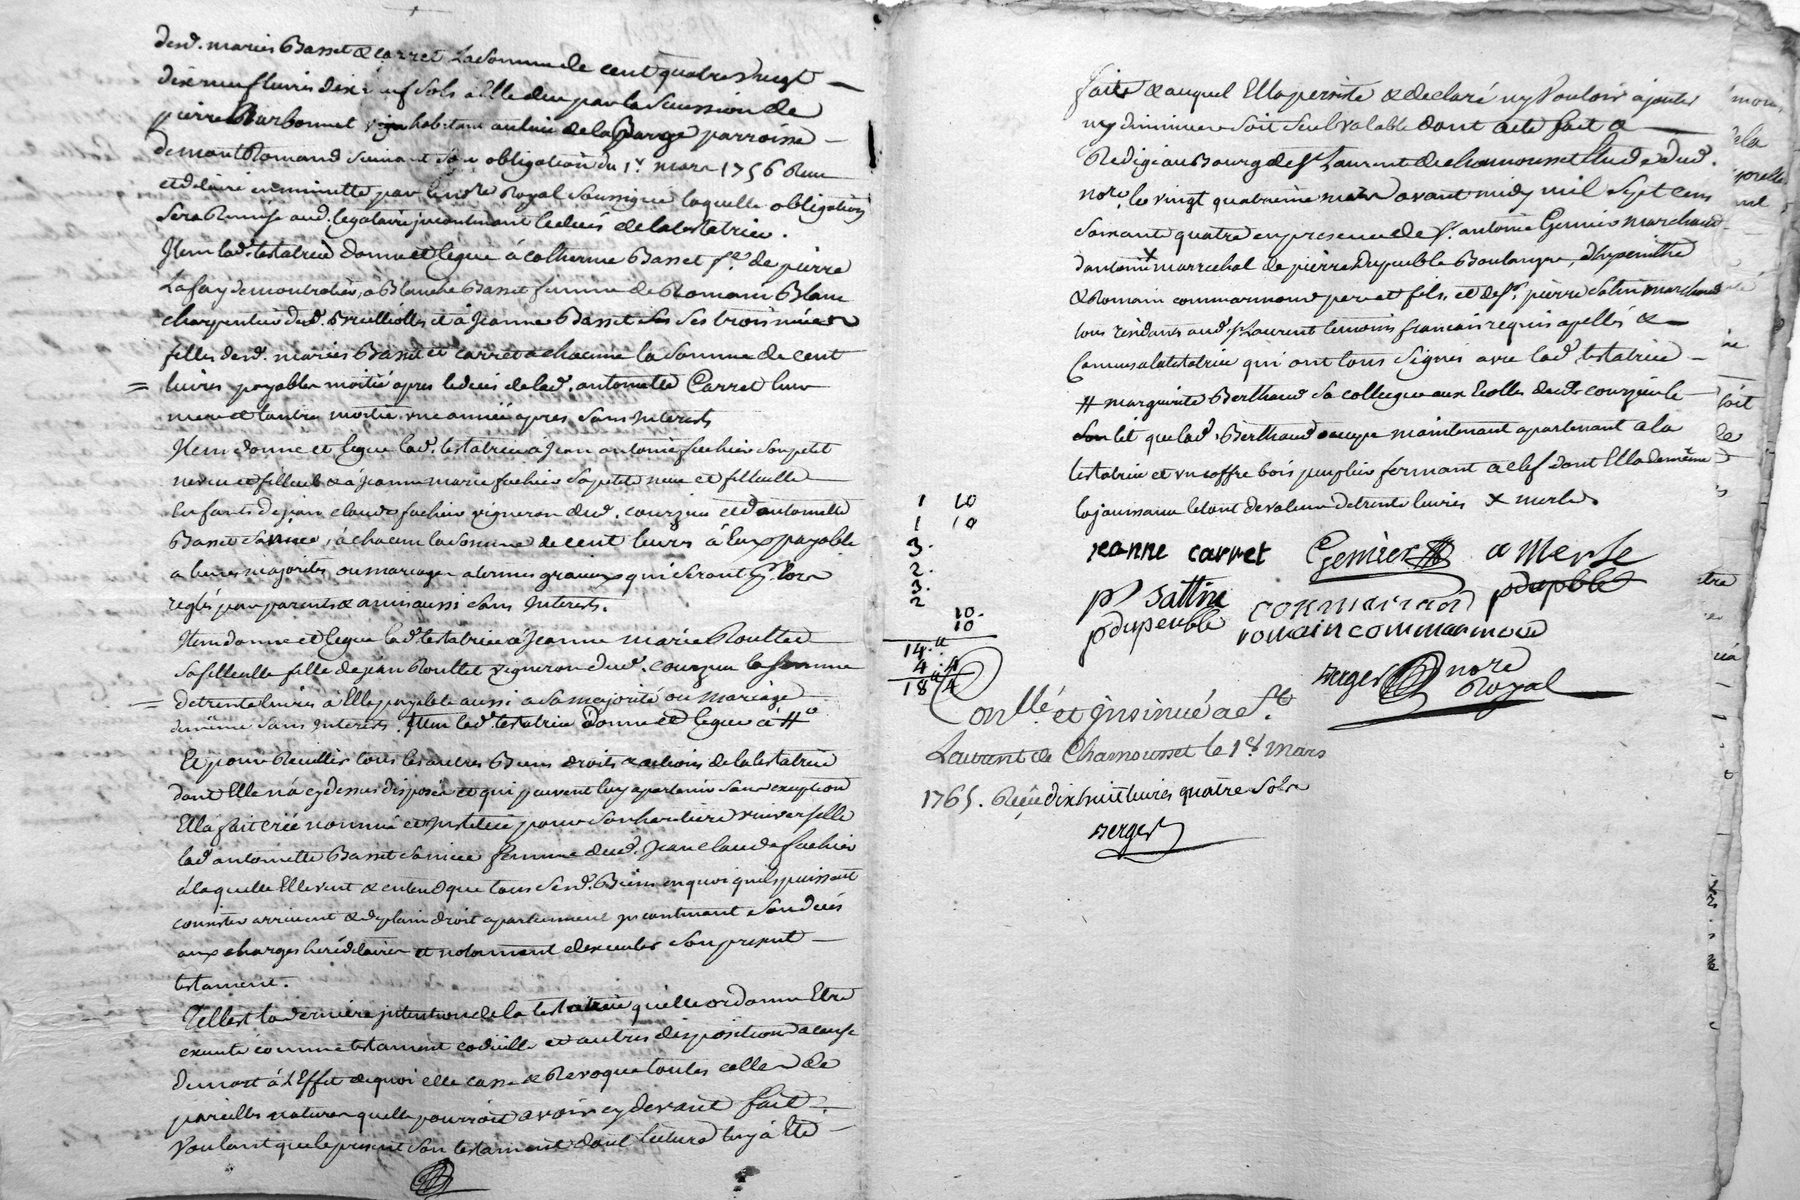 desd. mariés Basset & Carret La Somme de cent quatre vingt
dix neuf livres dix neuf Sols à Elle due par la Sucession de
pierre Barbonnet habitant au lieu de la Barge parroisse
de montRomand Suivant Son obligation du 1r. mars 1756 Reüe
et dument en minutte par le nore Royal Soussigné laquelle obligation
Sera Remise aud. legataire incontinant le decès de la testatrice.
Item lad. testatrice donne et legue à Catherine Basset fe. de pierre
Lafay de montrotier, à Blanche Basset femme de Romain Blanc
charpentier dud. Brullioles et à Jeanne Basset Ses trois nieces
filles desd. mariés Basset et Carret à chacune la Somme de cent
livres payables moitié apres le deces de lad. antoinette Carret leur
mere et l'autre moitié une année apres Sans Interests
Item donne et legue lad. testatrice à Jean antoine fachier Son petit
neveu et filleul & à Jeanne marie fachier Sa petite niece et filleulle
Enfants de jean claude fachier vigneron dud. courzieu et d'antoinette
Basset Sa niece, à chacun la Somme de cent livres à Eux payable
a leurs majorités ou mariages a termes gracieux qui Seront pr. lors
reglés par parents & amis aussi Sans Interests.
Item donne et legue lad. testatrice à Jeanne marie Roullet
Sa filleulle fille de jean Roullet vigneron dud. Courzieu la Somme
de trente livres à Elle payable aussi a Sa majorité ou mariage
de même Sans Interests. Item lad. testatrice donne et legue à #
Et pour Recuillir tous les autres Biens droits & actions de la testatrice
dont Elle n'a cy dessus disposé et qui peuvent luy apartenir Sans exception
Elle fait créé nommé et Institue pour Son heritiere universelle
lad. antoinette Basset Sa niece femme dud. Jean claude fachier
à laquelle Elle veut & entend que tous Sesd. Biens en quoi quils puissent
consister arrivent & de plain droit apartiennent incontinant Son decés
aux charges hereditaires et notamment d'executer Son present
testament.
Telle est la derniere intention de la testatrice qu'elle ordonne Etre
executé comme testament codicille et autres disposition a cause
de mort à l'Effet de quoi elle casse & Revoque toutes celles de
pareilles natures quelle pourroit avoir cy devant fait
Voulant que le present Son testament dont lecture luy à été
faite & auquel Elle persiste & declaré ny Vouloir ajouter
ny diminuer Soit Seul valable dont acte fait &
Redigé au Bourg de St. Laurent de chamousset Etude dud.
nore. le vingt quatrieme mars avant midy mil Sept cens
Soixante quatre en presence de Sr. antoine Gernier marchand
d'antoine x marechal de pierre Dupeuble Boulanger, d'hyacinthe
& Romain commarmond pere et fils, et de Sr. pierre Satin marchand
tous residants aud. St. Laurent temoins francais requis apellés &
Connus a la testatrice qui ont tous Signés avec lad. testatrice
# marguerite Berthaud Sa collegue aux Ecolles dud. courzieu le
Son lit que lad. Berthaud occupe maintenant apartenant a la
testatrice et un coffre bois peuplier fermant a clef dont Elle a de même
la jouissance le tout de valeur de trente livres x merle
1 10
1 10
3.
2.
3.
2
10.
10
14."
4 : 4
18" 4
jeanne carret Gernier a Merle
p Sattin commarmond pdupeuble
pdupeuble romain commarmond
Berger nore
Royal
Conlle. et Insinué a St.
Laurent de Chamousset le 1er mars
1765. Reçu dix huit livres quatre Sols
Berger